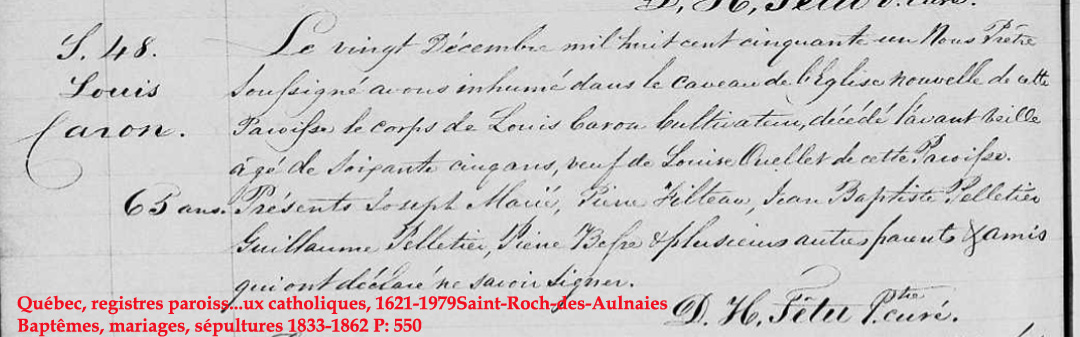 D. H. Têtu Ptre curé.
S. 48.
Louis
Caron.
65 ans.
Le vingt Décembre mil huit cent cinquante un Nous Prêtre
Soussigné avons inhumé dans le caveau de l'Eglise nouvelle de cette
Paroisse le corps de Louis Caron Cultivateur, décédé l'avant veille
âgé de Soixante cinq ans, veuf de Louise Ouellet de cette Paroisse.
Présents Joseph Marié, Pierre Filteau, Jean Baptiste Pelletier
Guillaume Pelletier, Pierre & plusieurs autres parents & amis
qui ont déclaré ne savoir signer.
D. H. Têtu Ptre curé.
Québec, registres paroiss...ux catholiques, 1621-1979Saint-Roch-des-Aulnaies
Baptêmes, mariages, sépultures 1833-1862 P: 550